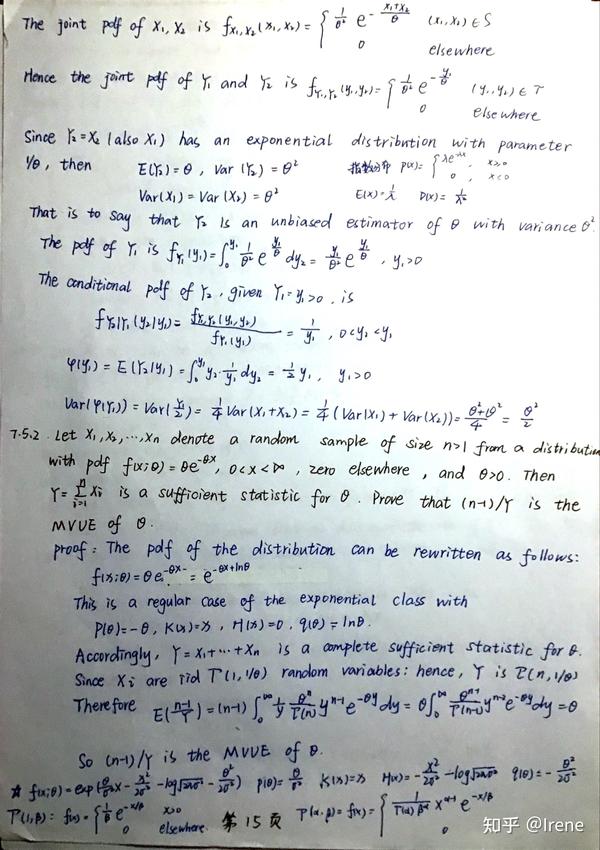 The joint pdf of X₁, X₂ is f_{X₁,X₂}(x₁,x₂) = { 1/θ² e^{-(x₁+x₂)/θ} (x₁,x₂)∈S
0 elsewhere
Hence the joint pdf of Y₁ and Y₂ is f_{Y₁,Y₂}(y₁,y₂) = { 1/θ² e^{-y₁/θ} (y₁,y₂)∈T
0 elsewhere
Since Y₂=X₂ (also X₁) has an exponential distribution with parameter
1/θ, then E(Y₂)=θ, Var(Y₂)=θ² 指数分布 p(x)= { λe^{-λx}, x≥0
0, x<0
Var(X₁)=Var(X₂)=θ² E(x)=1/λ D(x)=1/λ²
That is to say that Y₂ is an unbiased estimator of θ with variance θ².
The pdf of Y₁ is f_{Y₁}(y₁)=∫₀^{y₁} 1/θ² e^{y₁/θ} dy₂ = y₁/θ² e^{y₁/θ}, y₁>0
The conditional pdf of Y₂, given Y₁=y₁>0, is
f_{Y₂|Y₁}(y₂|y₁) = f_{Y₁,Y₂}(y₁,y₂)/f_{Y₁}(y₁) = 1/y₁, 0<y₂<y₁
φ(y₁)=E(Y₂|y₁)=∫₀^{y₁} y₂·1/y₁ dy₂ = 1/2 y₁, y₁>0
Var(φ(Y₁))=Var(Y₁/2)=1/4 Var(X₁+X₂)=1/4(Var(X₁)+Var(X₂))=(θ²+θ²)/4=θ²/2
7.5.2. Let X₁,X₂,⋯,Xn denote a random sample of size n>1 from a distribution
with pdf f(x;θ)=θe^{-θx}, 0<x<∞, zero elsewhere, and θ>0. Then
Y=∑_{i=1}^{n} Xi is a sufficient statistic for θ. Prove that (n-1)/Y is the
MVUE of θ.
proof: The pdf of the distribution can be rewritten as follows:
f(x;θ)=θe^{-θx}=e^{-θx+lnθ}
This is a regular case of the exponential class with
p(θ)=-θ, K(x)=x, H(x)=0, q(θ)=lnθ.
Accordingly, Y=X₁+⋯+Xn is a complete sufficient statistic for θ.
Since Xi are iid Γ(1,1/θ) random variables: hence, Y is Γ(n,1/θ)
Therefore E((n-1)/Y)=(n-1)∫₀^∞ 1/y θⁿ/Γ(n) y^{n-1}e^{-θy}dy=θ∫₀^∞ θ^{n-1}/Γ(n-1) y^{n-2}e^{-θy}dy=θ
So (n-1)/Y is the MVUE of θ.
☆ f(x;θ)=exp(θ/σ² x - x²/2σ² - log√2πσ² - θ²/2σ²) p(θ)=θ/σ² K(x)=x H(x)=-x²/2σ² - log√2πσ² q(θ)=-θ²/2σ²
Γ(1,β): f(x)= { 1/β e^{-x/β} x>0
0 elsewhere
第15页
Γ(α,β)=f(x)= { 1/(Γ(α)β^α) x^{α-1} e^{-x/β}
0
知乎 @Irene